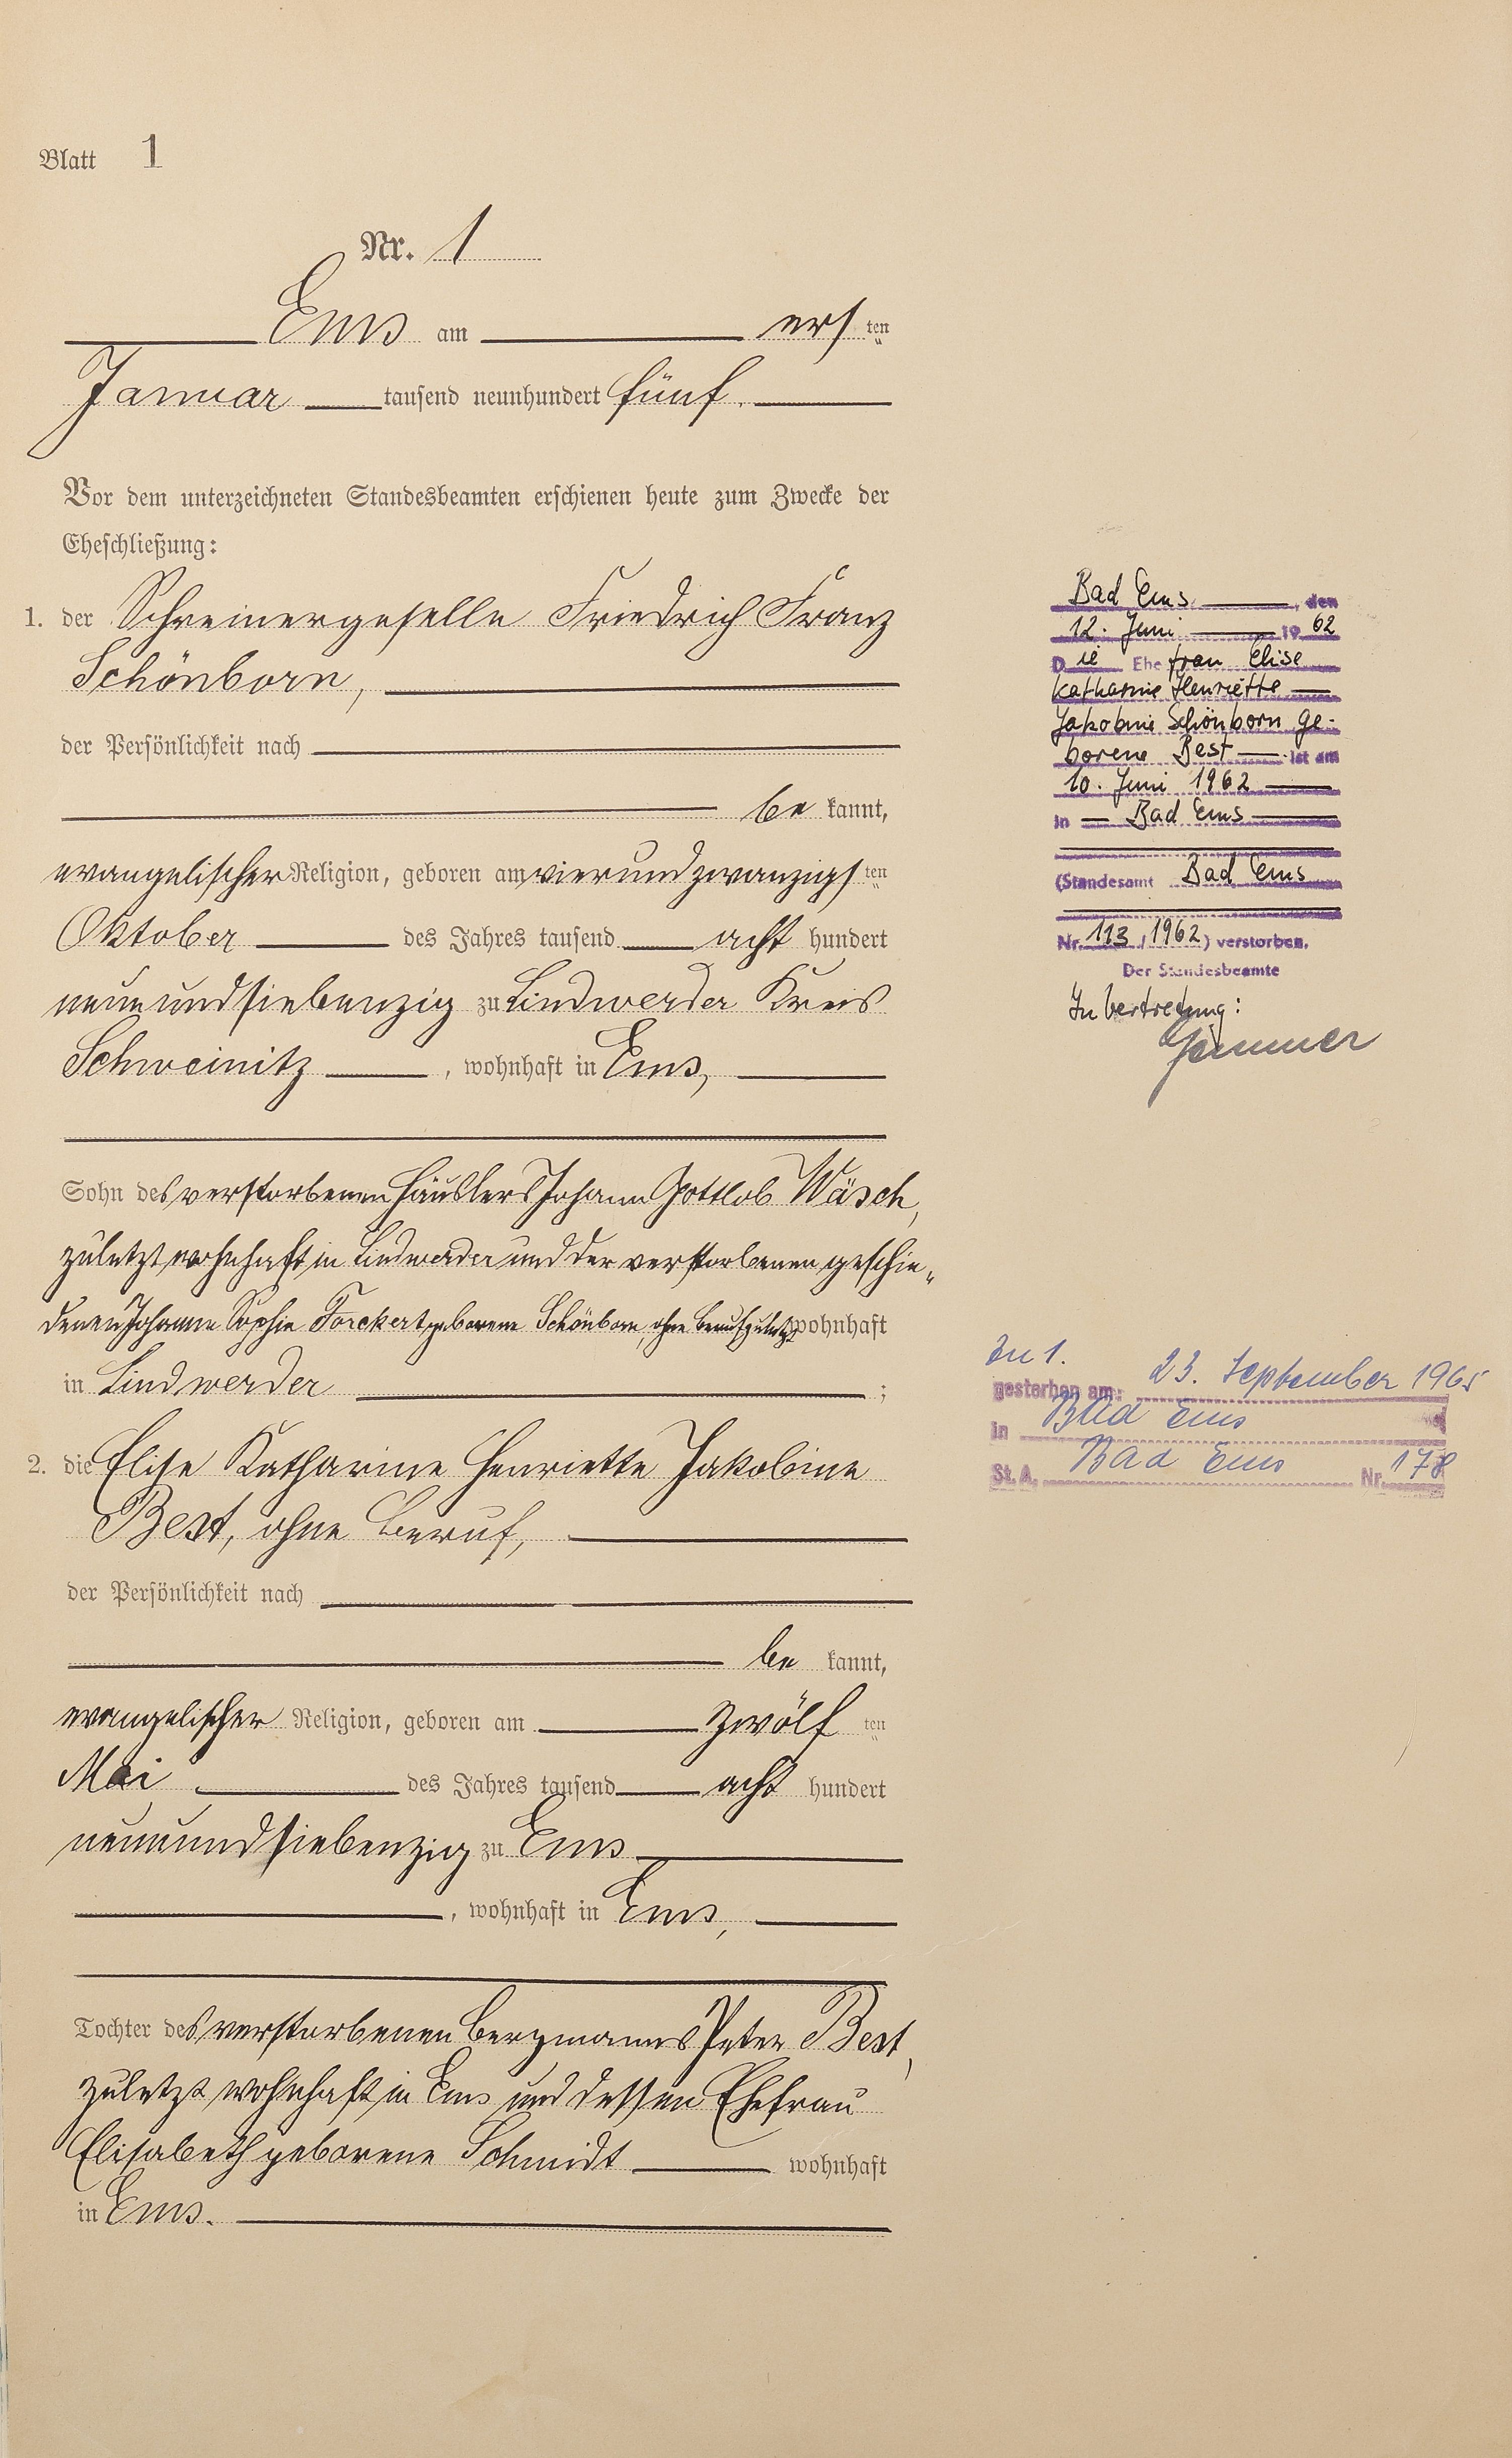 Blatt 1
Nr. 1
Ems am ersten
Januar tausend neunhundert fünf.
Vor dem unterzeichneten Standesbeamten erschienen heute zum Zwecke der
Eheschließung:
1. der Schreinergeselle Friedrich Franz
Schönborn,
der Persönlichkeit nach
bekannt,
evangelischer Religion, geboren am vierundzwanzigsten
Oktober des Jahres tausend acht hundert
neunundsiebenzig zu Lindwerder Kreis
Schweinitz, wohnhaft in Ems,
Sohn des verstorbenen Häuslers Johann Gottlob Wäsch,
zuletzt wohnhaft in Lindwerder und der verstorbenen geschie„
denen Johanne Sophie Forckert geborene Schönborn, ohne Beruf zuletzt wohnhaft
in Lindwerder;
2. die Elise Katharine Henriette Jakobine
Best, ohne Beruf,
der Persönlichkeit nach
bekannt,
evangelischer Religion, geboren am zwölften
Mai des Jahres tausend acht hundert
neunundsiebenzig zu Ems
, wohnhaft in Ems,
Tochter des verstorbenen Bergmanns Peter Best,
zuletzt wohnhaft in Ems und dessen Ehefrau
Elisabeth geborene Schmidt wohnhaft
in Ems.
Bad Ems, den
12. Juni 1962
Die Ehefrau Elise
Katharine Henriette
Jakobine Schönborn ge-
borene Best ist am
10. Juni 1962
in Bad Ems
(Standesamt Bad Ems
Nr. 113/1962) verstorben.
Der Standesbeamte
In Vertretung:
Zu 1.
gestorben am: 23. September 1965
in Bad Ems
St. A. Bad Ems Nr. 178